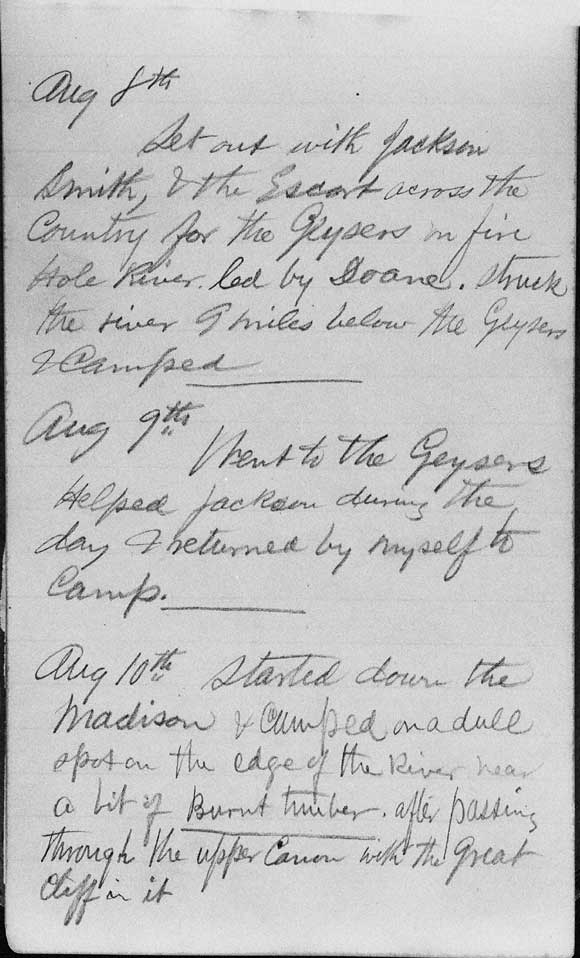 Aug 8th
Set out with Jackson
Smith, & the Escort across the
Country for the Geysers on fire
Hole River. led by Doane. struck
the river 9 miles below the Geysers
& Camped
Aug 9th
Went to the Geysers
Helped Jackson during the
day & returned by myself to
Camp.
Aug 10th Started down the
Madison & Camped on a dull
spot on the edge of the River near
a bit of Burnt timber. after passing
through the upper Canon with the Great
Cliff in it